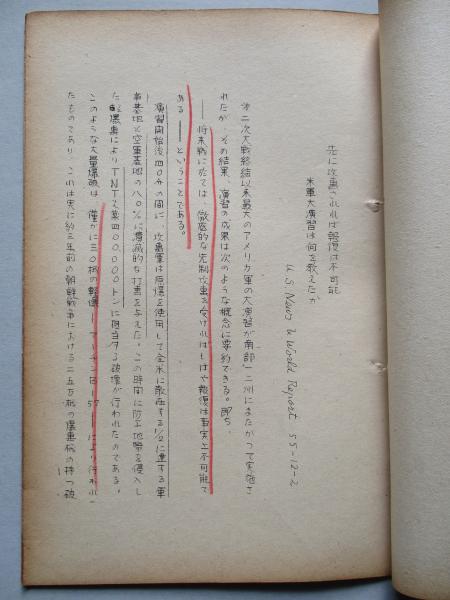 先に攻撃されれば報復は不可能
米軍大演習は何を教えたか
U.S. News & World Report 55-12-2
第二次大戦終結以来最大のアメリカ軍の大演習が南部二州にまたがって実施さ
れたが、その結果、演習の成果は次のような概念に要約できる。即ち、
――将来戦に於ては、徹底的な先制攻撃を受ければもはや報復は事実上不可能で
ある――ということである。
演習開始後四〇分の間に、攻撃軍は原爆を使用して全米に散在する1/2に達する軍
事基地と空軍基地の八〇%に潰滅的な打撃を与えた。この時間に防手地帯を侵入し
た 爆撃によりTNT火薬四〇〇,〇〇〇トンに相当する破壊が行われたのである。
このような大量爆破は、僅かに三〇機の軽爆――マーチンB-57――により行われ
たものであり、これは実に約三年前の朝鮮戦争における二五万機の爆撃機の持つ破